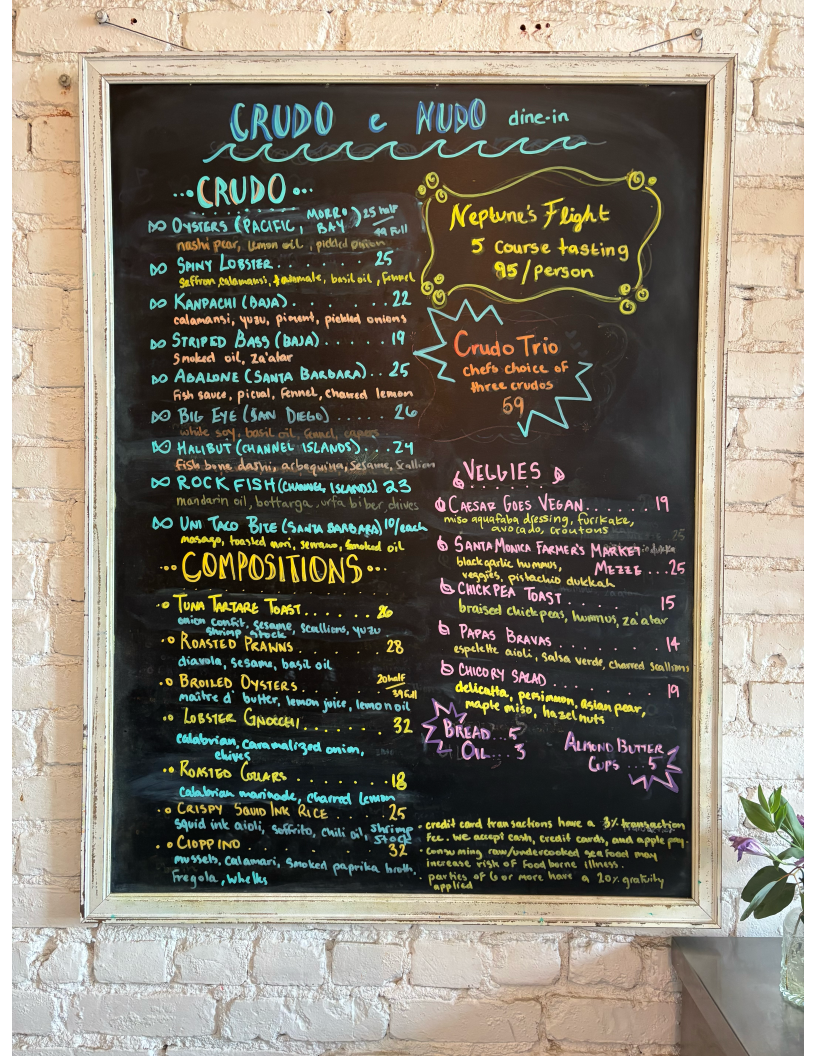 CRUDO e NUDO dine-in
..CRUDO..
OYSTERS (PACIFIC, MORRO BAY) 25 half
49 full
nashi pear, lemon oil, pickled onion
SPINY LOBSTER.......25
saffron, calamansi, basil oil, fennel
KANPACHI (BAJA).......22
calamansi, yuzu, piment, pickled onions
STRIPED BASS (BAJA)......19
smoked oil, za'atar
ABALONE (SANTA BARBARA)...25
fish sauce, picual, fennel, charred lemon
BIG EYE (SAN DIEGO)......26
white soy, basil oil, fennel, capers
HALIBUT (CHANNEL ISLANDS)....24
fish bone dashi, arbequina, sesame, scallion
ROCK FISH (CHANNEL ISLANDS) 23
mandarin oil, bottarga, urfa biber, chives
UNI TACO BITE (SANTA BARBARA) 10/each
masago, toasted nori, serrano, smoked oil
..COMPOSITIONS..
TUNA TARTARE TOAST......26
onion confit, sesame, scallions, yuzu
shrimp stock
ROASTED PRAWNS.......28
diavola, sesame, basil oil
BROILED OYSTERS.......20 half
39 full
maître d' butter, lemon juice, lemon oil
LOBSTER GNOCCHI.......32
calabrian, caramalized onion,
chives
ROASTED COLLARS.......18
calabrian marinade, charred lemon
CRISPY SQUID INK RICE.....25
squid ink aioli, soffrito, chili oil, shrimp
stock
CIOPPINO.......32
mussels, calamari, smoked paprika broth,
fregola, whelks
Neptune's Flight
5 course tasting
95/person
Crudo Trio
chefs choice of
three crudos
59
VEGGIES
CAESAR GOES VEGAN.......19
miso aquafaba dressing, furikake,
avocado, croutons
SANTA MONICA FARMER'S MARKET
MEZZE...25
black garlic hummus,
veggies, pistachio dukkah
CHICKPEA TOAST.......15
braised chickpeas, hummus, za'atar
PAPAS BRAVAS.......14
espelette aioli, salsa verde, charred scallions
CHICORY SALAD.......19
delicatta, persimmon, asian pear,
maple miso, hazelnuts
BREAD...5
OIL...3
ALMOND BUTTER
CUPS...5
. credit card transactions have a 3% transaction
fee. we accept cash, credit cards, and apple pay.
. consuming raw/undercooked seafood may
increase risk of foodborne illness.
. parties of 6 or more have a 20% gratuity
applied